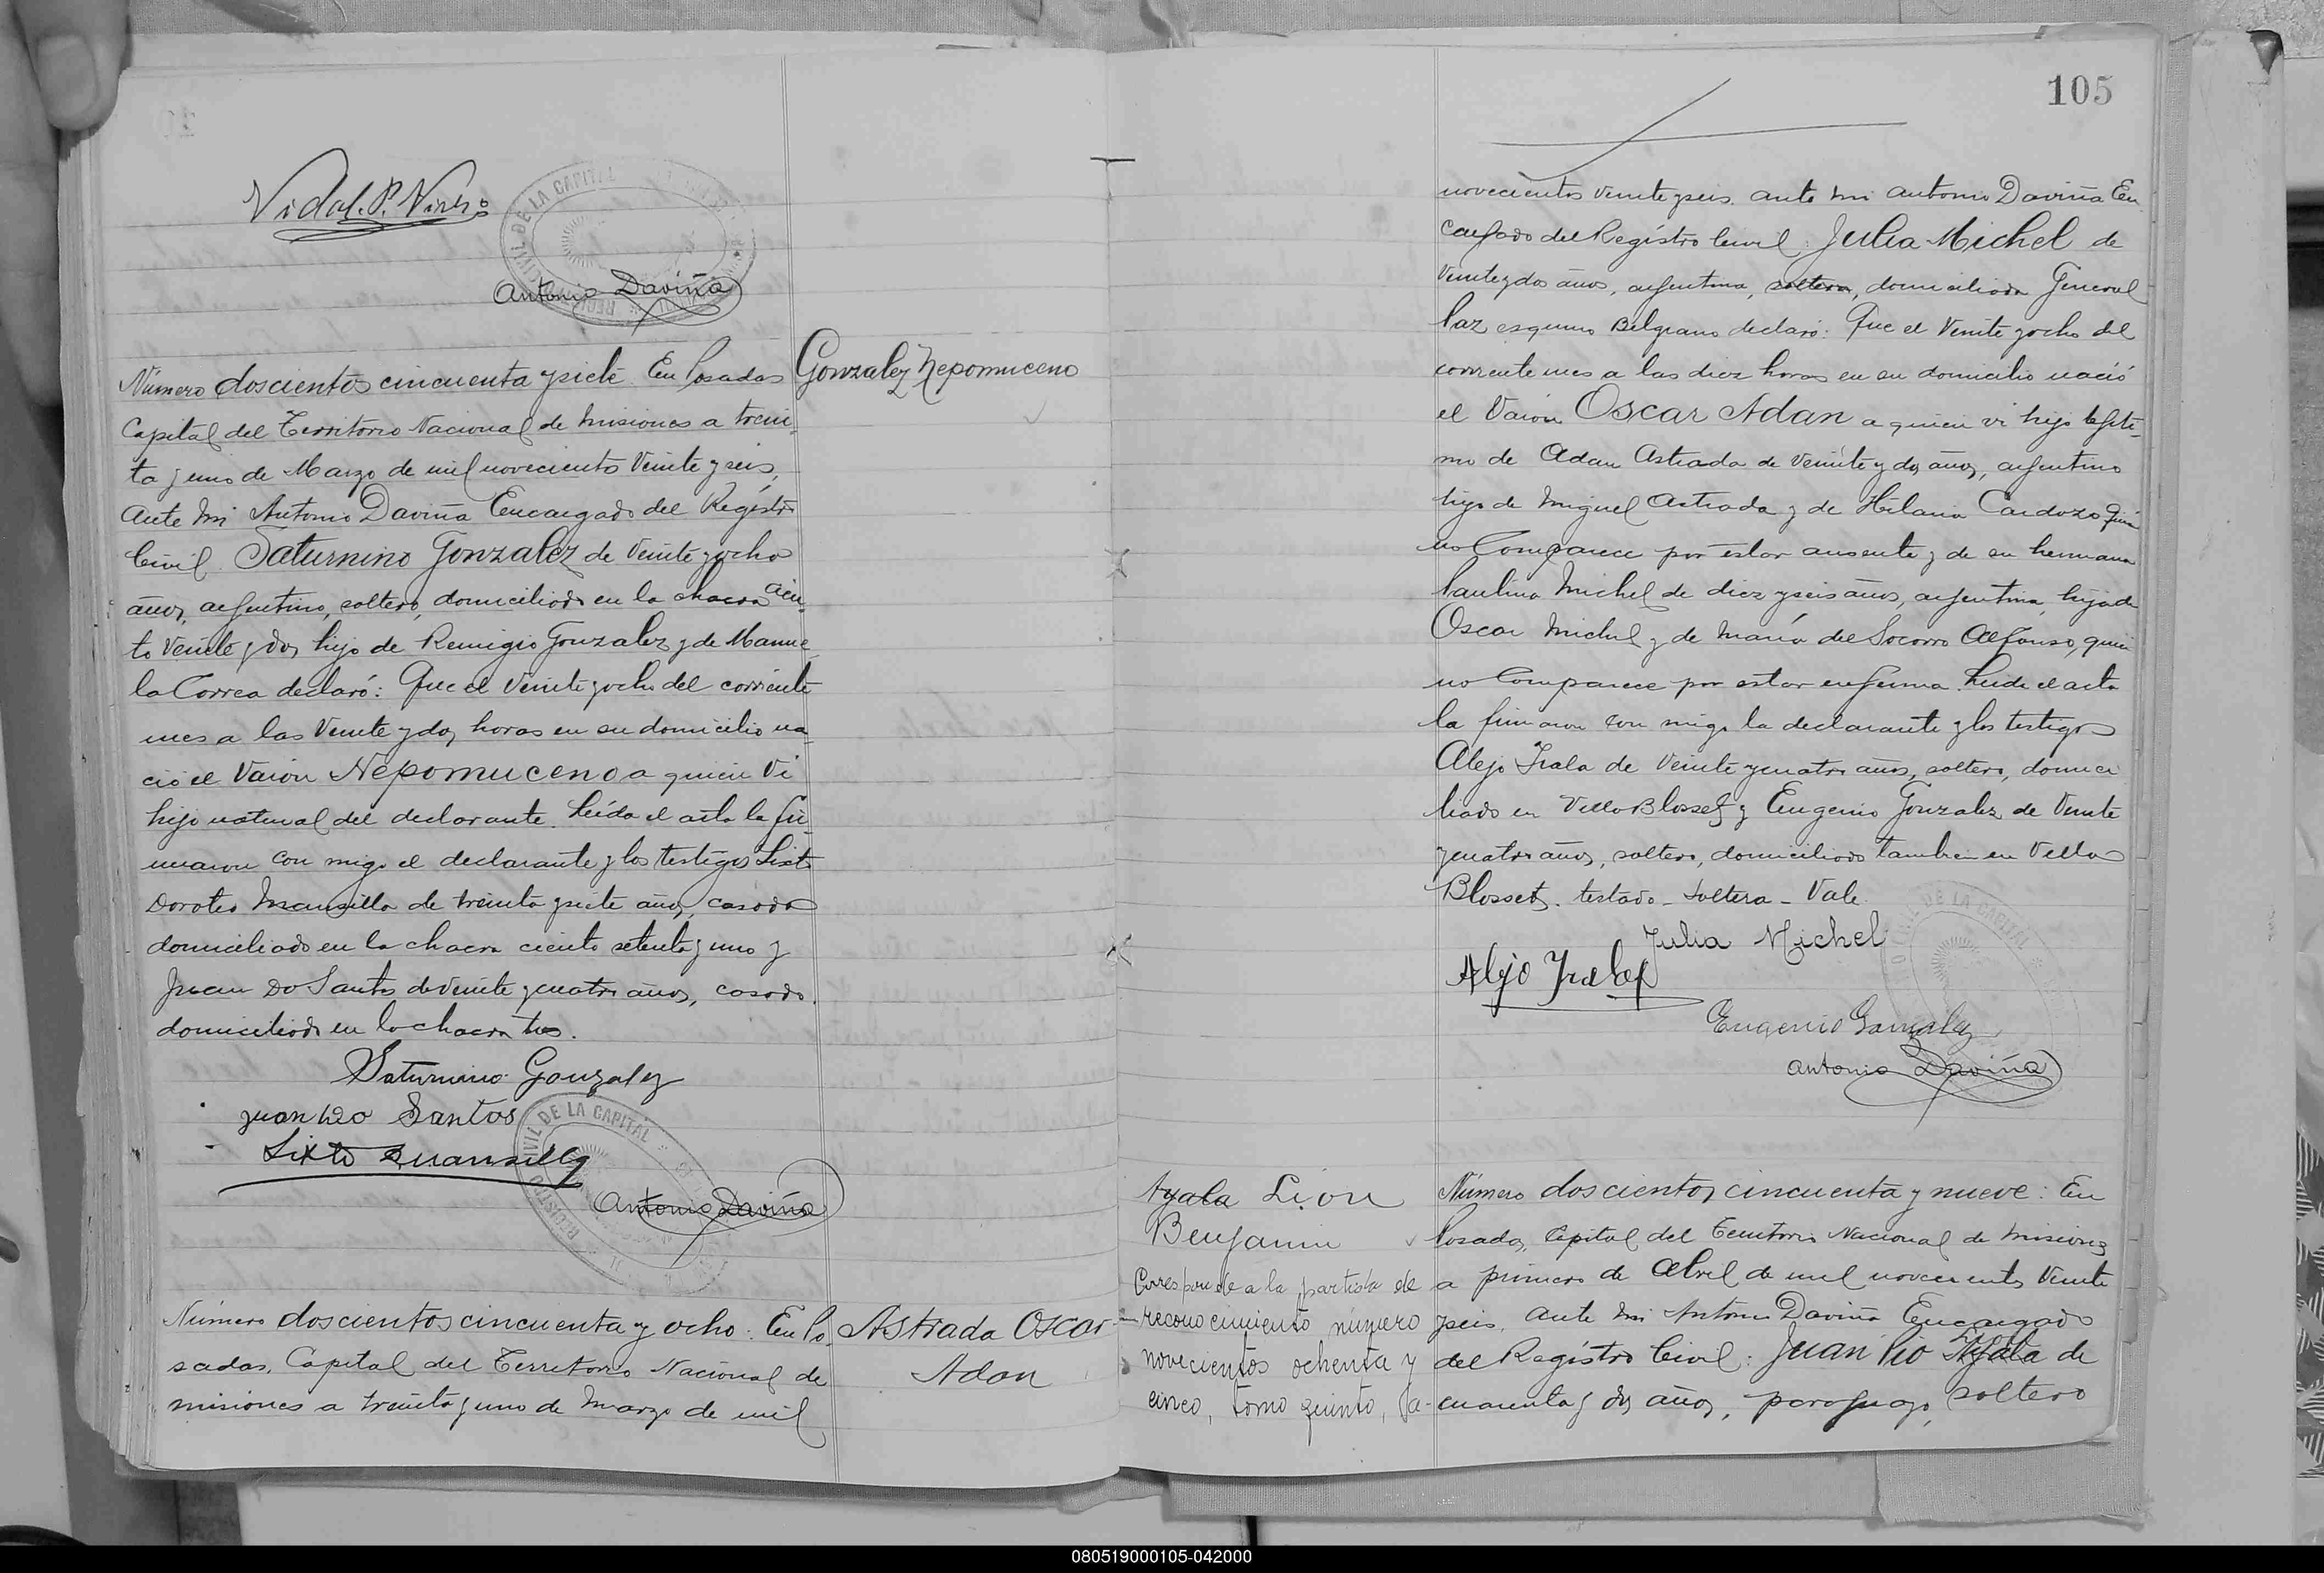 Vidal. P. Nires
REGISTRO CIVIL DE LA CAPITAL
Antonio Daviña
Número doscientos cincuenta y siete. En Posadas
Gonzalez Nepomuceno
Capital del Territorio Nacional de Misiones a trein-
ta y uno de Marzo de mil novecientos veinte y seis,
Ante mi Antonio Daviña Encargado del Registro
Civil. Saturnino Gonzalez de veinte y ocho
años, argentino, soltero, domiciliado en la chacra cien-
to veinte y dos, hijo de Remigio Gonzalez y de Manue-
la Correa declaró: Que el veinte y ocho del corriente
mes a las veinte y dos horas en su domicilio na-
ció el varón Nepomuceno a quien vi
hijo natural del declarante. Leída el acta la fir-
maron con migo el declarante y los testigos Sixto
Doroteo Mansilla de treinta y siete años, casado
domiciliado en la chacra ciento setenta y uno y
Juan Do Santos de veinte y cuatro años, casado.
domiciliado en la chacra tres.
Saturnino Gonzalez
Juan Do Santos
Sixto Mansilla
REGISTRO CIVIL DE LA CAPITAL
Antonio Daviña
Número doscientos cincuenta y ocho: En Po-
Astrada Oscar
Adan
sadas, Capital del Territorio Nacional de
misiones a treinta y uno de Marzo de mil
105
novecientos veinte y seis. ante mi Antonio Daviña En
cargado del Registro Civil: Julia Michel de
veinte y dos años, argentina, soltera, domiciliada General
Paz esquina Belgrano declaró: Que el veinte y ocho del
corriente mes a las diez horas en su domicilio nació
el varón Oscar Adan a quien vi hijo legíti-
mo de Adan Astrada de veinte y dos años, argentino
hijo de Miguel Astrada y de Hilaria Cardozo quien
no comparece por estar ausente y de su hermana
Paulina Michel de diez y seis años, argentina, hija de
Oscar Michel y de María del Socorro Alfonso, quien
no comparece por estar enferma. Leida el acta
la firmaron con migo la declarante y los testigos
Alejo Irala de veinte y cuatro años, soltero, domici
liado en Villa Blosset y Eugenio Gonzalez de veinte
y cuatro años, soltero, domiciliado tambien en Villa
Blosset. testado - soltera - Vale.
Julia Michel
Alejo Irala
Eugenio Gonzalez
CIVIL DE LA CAPITAL
Antonio Daviña
Ayala León
Benjamin
Corresponde a la partida de
reconocimiento número
novecientos ochenta y
cinco, tomo quinto,
Número doscientos cincuenta y nueve: En
Posadas, Capital del Territorio Nacional de Misiones
a primero de Abril de mil novecientos veinte
y seis, ante mi Antonio Daviña Encargado
del Registro Civil: Juan Pio León Ayala de
cuarenta y dos años, paraguayo, soltero
080519000105-042000